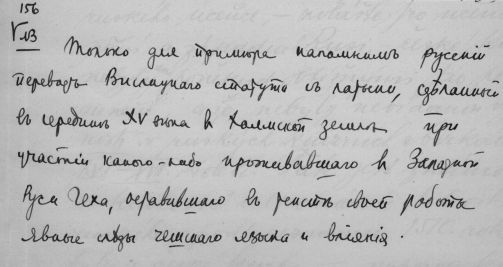 156
Только для примѣра напомнимъ русскій
переводъ Вислицкаго статута съ латыни, сдѣланный
въ серединѣ XV вѣка въ Холмской землѣ при
участіи какого-либо проживавшаго въ Западной
Руси Чеха, оставившаго въ текстѣ своей работы
явные слѣды чешскаго языка и вліянія.